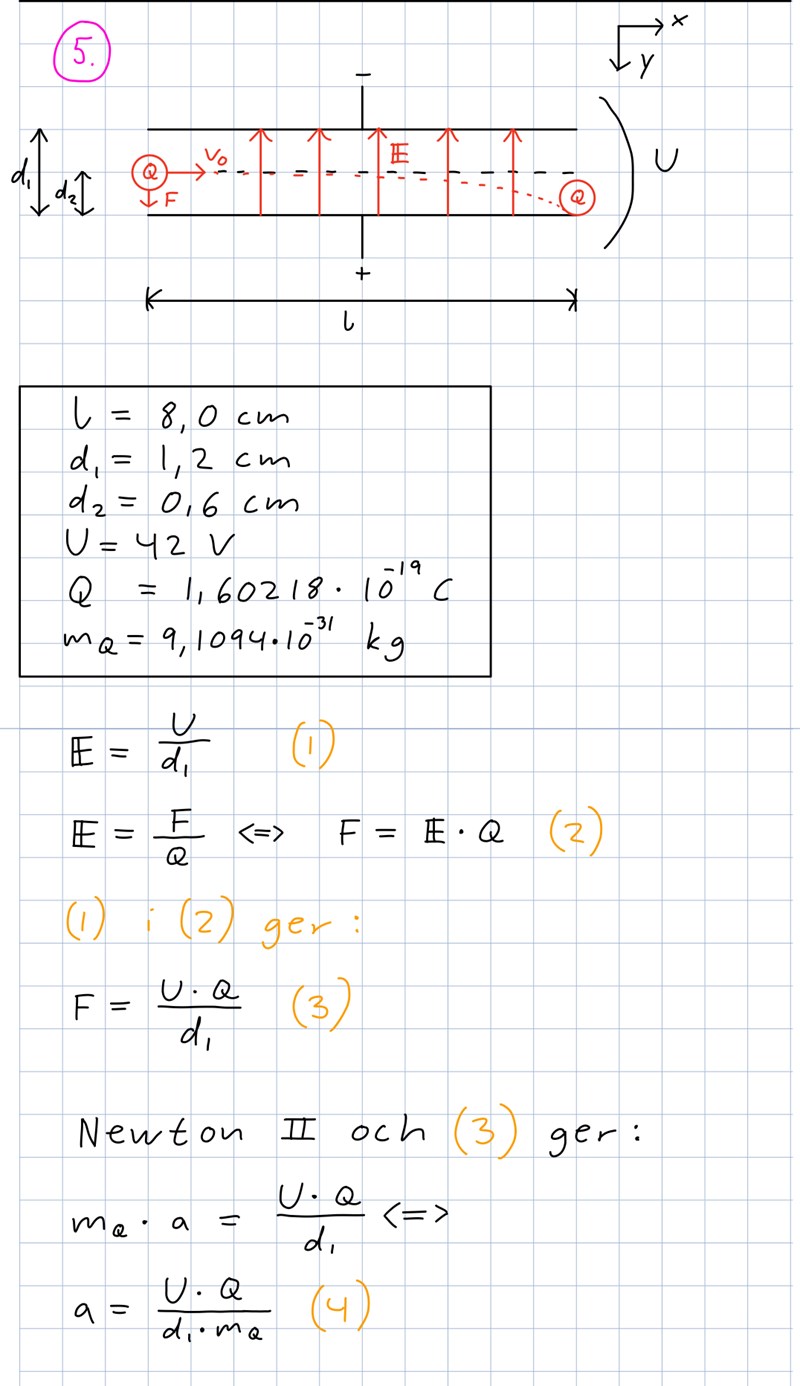 5.
x
y
−
d₁
d₂
Q
v₀
F
E
Q
U
+
l
l = 8,0 cm
d₁ = 1,2 cm
d₂ = 0,6 cm
U = 42 V
Q = 1,60218 · 10⁻¹⁹ C
m_Q = 9,1094 · 10⁻³¹ kg
𝔼 = U/d₁ (1)
𝔼 = F/Q <=> F = 𝔼 · Q (2)
(1) i (2) ger :
F = U · Q/d₁ (3)
Newton II och (3) ger :
m_Q · a = U · Q/d₁ <=>
a = U · Q/d₁ · m_Q (4)